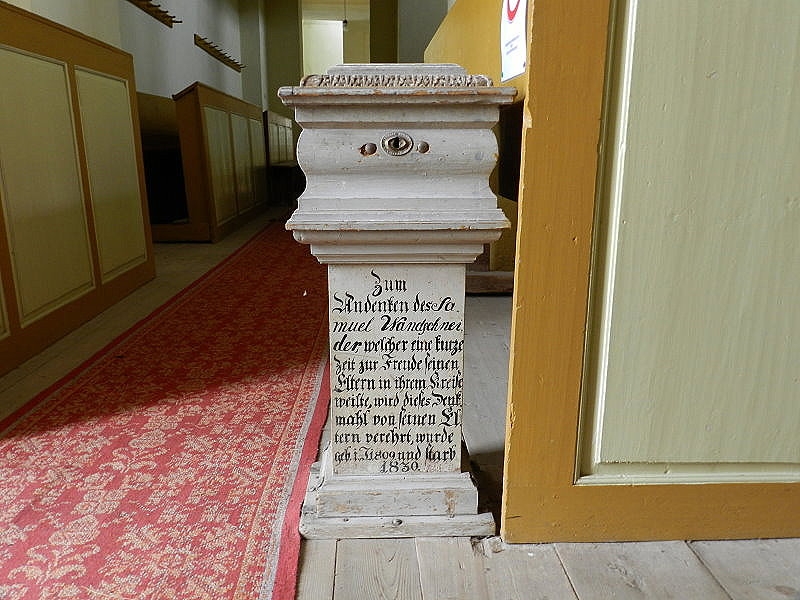 Zum
Andenken des Sa
muel Wandschnei
der welcher eine kurze
Zeit zur Freude seinen
Eltern in ihrem Kreise
weilte, wird dieses Denk
mahl von seinen El
tern verehrt, wurde
geb: i. J 1809 und starb
1830.